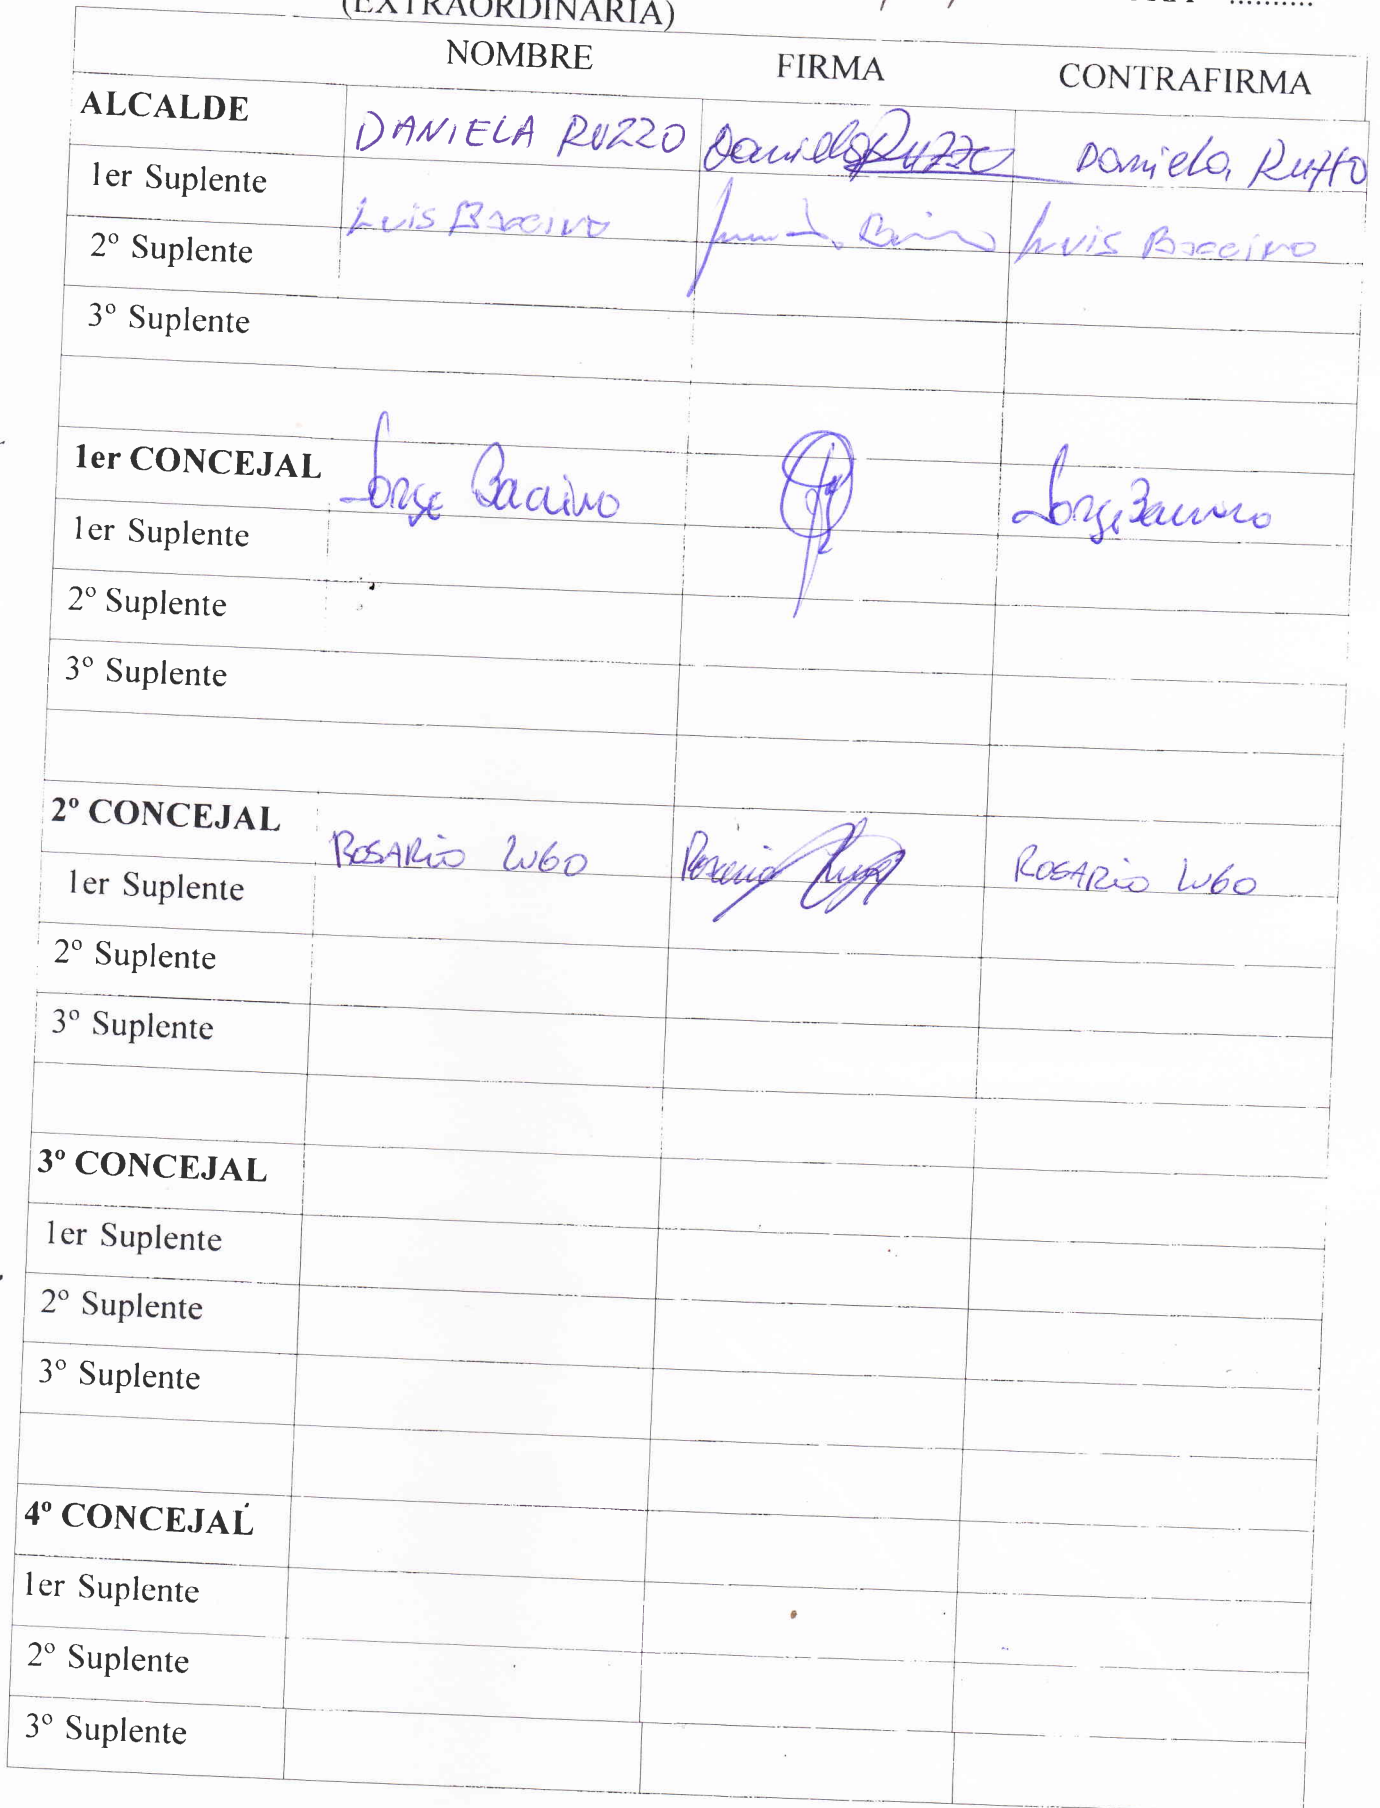 (EXTRAORDINARIA) ..........
NOMBRE FIRMA CONTRAFIRMA
ALCALDE DANIELA RUZZO Daniela Ruzzo Daniela Ruzzo
1er Suplente Luis Baccino Luis Baccino
2º Suplente
3º Suplente
1er CONCEJAL Jorge Baccino Jorge Baccino
1er Suplente
2º Suplente
3º Suplente
2º CONCEJAL ROSARIO LUGO Rosario Lugo ROSARIO LUGO
1er Suplente
2º Suplente
3º Suplente
3º CONCEJAL
1er Suplente
2º Suplente
3º Suplente
4º CONCEJAL
1er Suplente
2º Suplente
3º Suplente